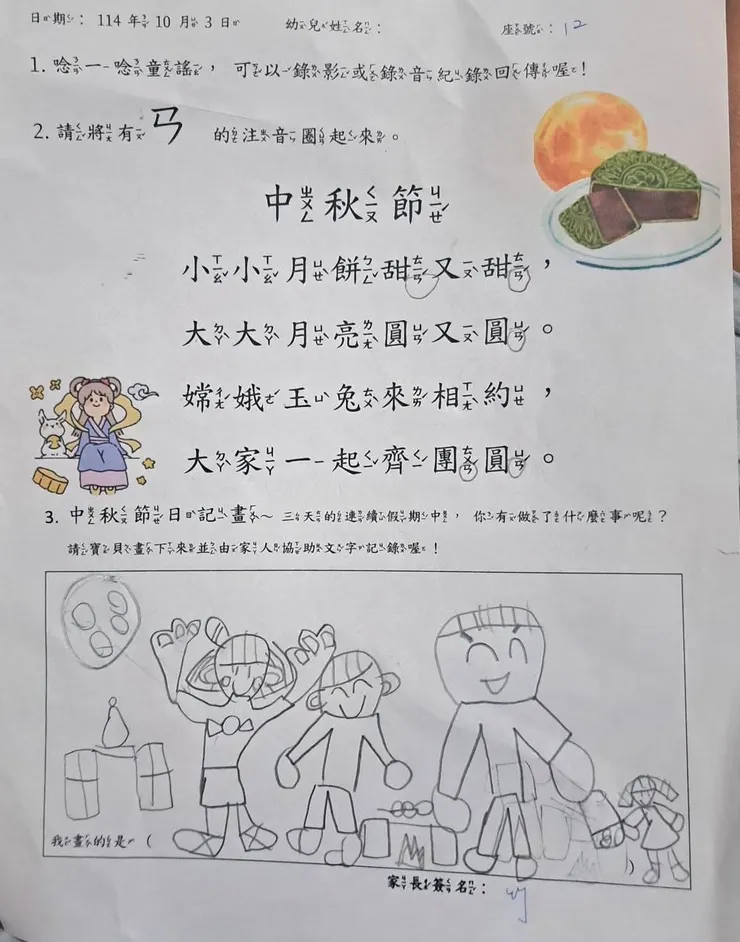 日期： 114 年 10 月 3 日 幼兒姓名： 座號：12
1. 唸一唸童謠， 可以錄影或錄音紀錄回傳喔！
2. 請將有 ㄢ 的注音圈起來。
中秋節
小小月餅甜又甜，
大大月亮圓又圓。
嫦娥玉兔來相約，
大家一起齊團圓。
3. 中秋節日記畫～ 三天的連續假期中， 你有做了什麼事呢？
請寶貝畫下來並由家人協助文字記錄喔！
我畫的是（ ）
家長簽名：